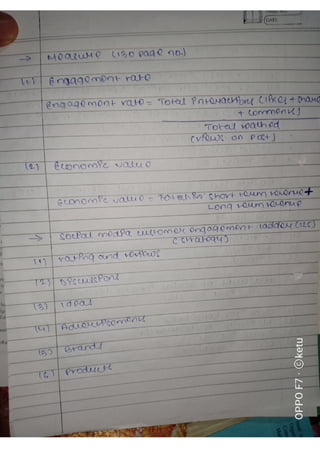 DATE
→ Measure (130 page no.)
(1) Engagement rate
Engagement rate = Total Interactions (likes + share
+ comments)
Total reached
(views on post)
(2) Economic value
Economic value = Total in short term revenue +
Long term revenue
→ Social media customer engagement ladder (125)
(strategy)
(1) rating and reviews
(2) Discussions
(3) Ideas
(4) Advertisements
(5) Brands
(6) Products
OPPO F7 · ©ketu